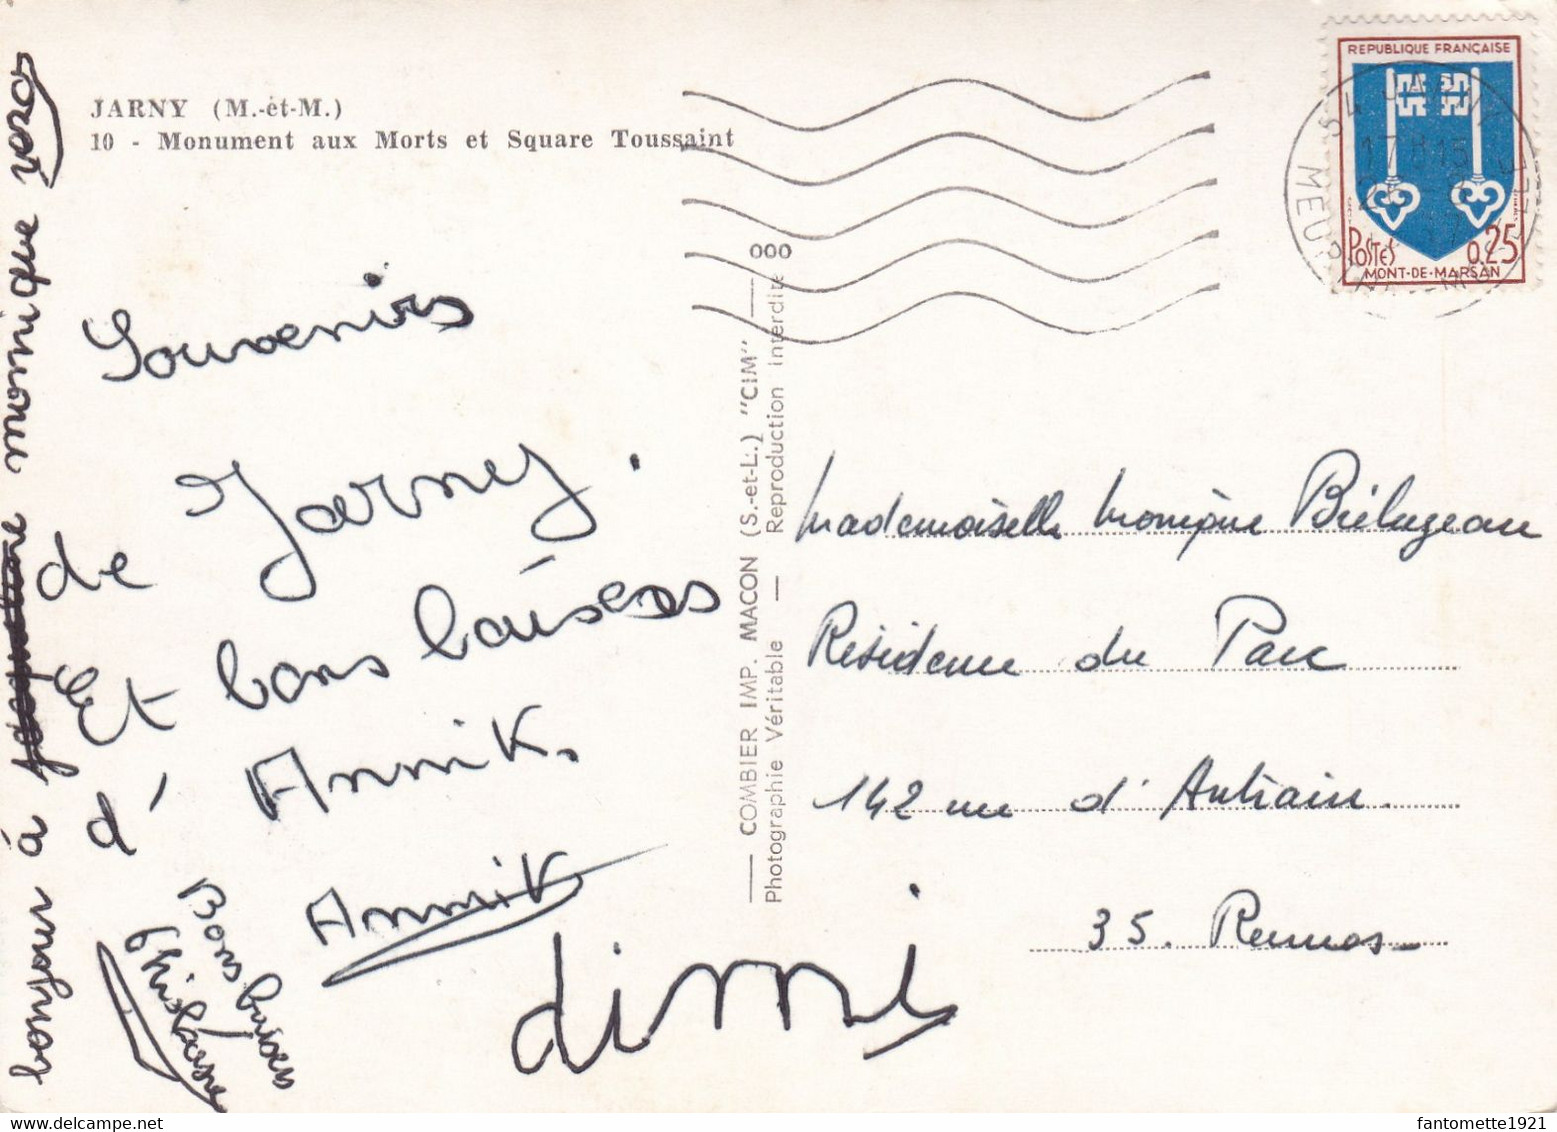 JARNY (M.-et-M.)
10 - Monument aux Morts et Square Toussaint
Souvenirs
de Jarny.
Et bons baisers
d'Annik.
Annik
Bons baisers
Ghislaine
dimi
bonjour à monique
COMBIER IMP. MACON (S.-et-L.) "CIM"
Photographie Véritable — Reproduction interdite
000
REPUBLIQUE FRANÇAISE
POSTES 0,25
MONT-DE-MARSAN
54 JARNY
17H15
MEURTHE
Mademoiselle Monique Biéluzeau
Résidence du Parc
142 rue d'Antrain.
35. Rennes
fantomette1921